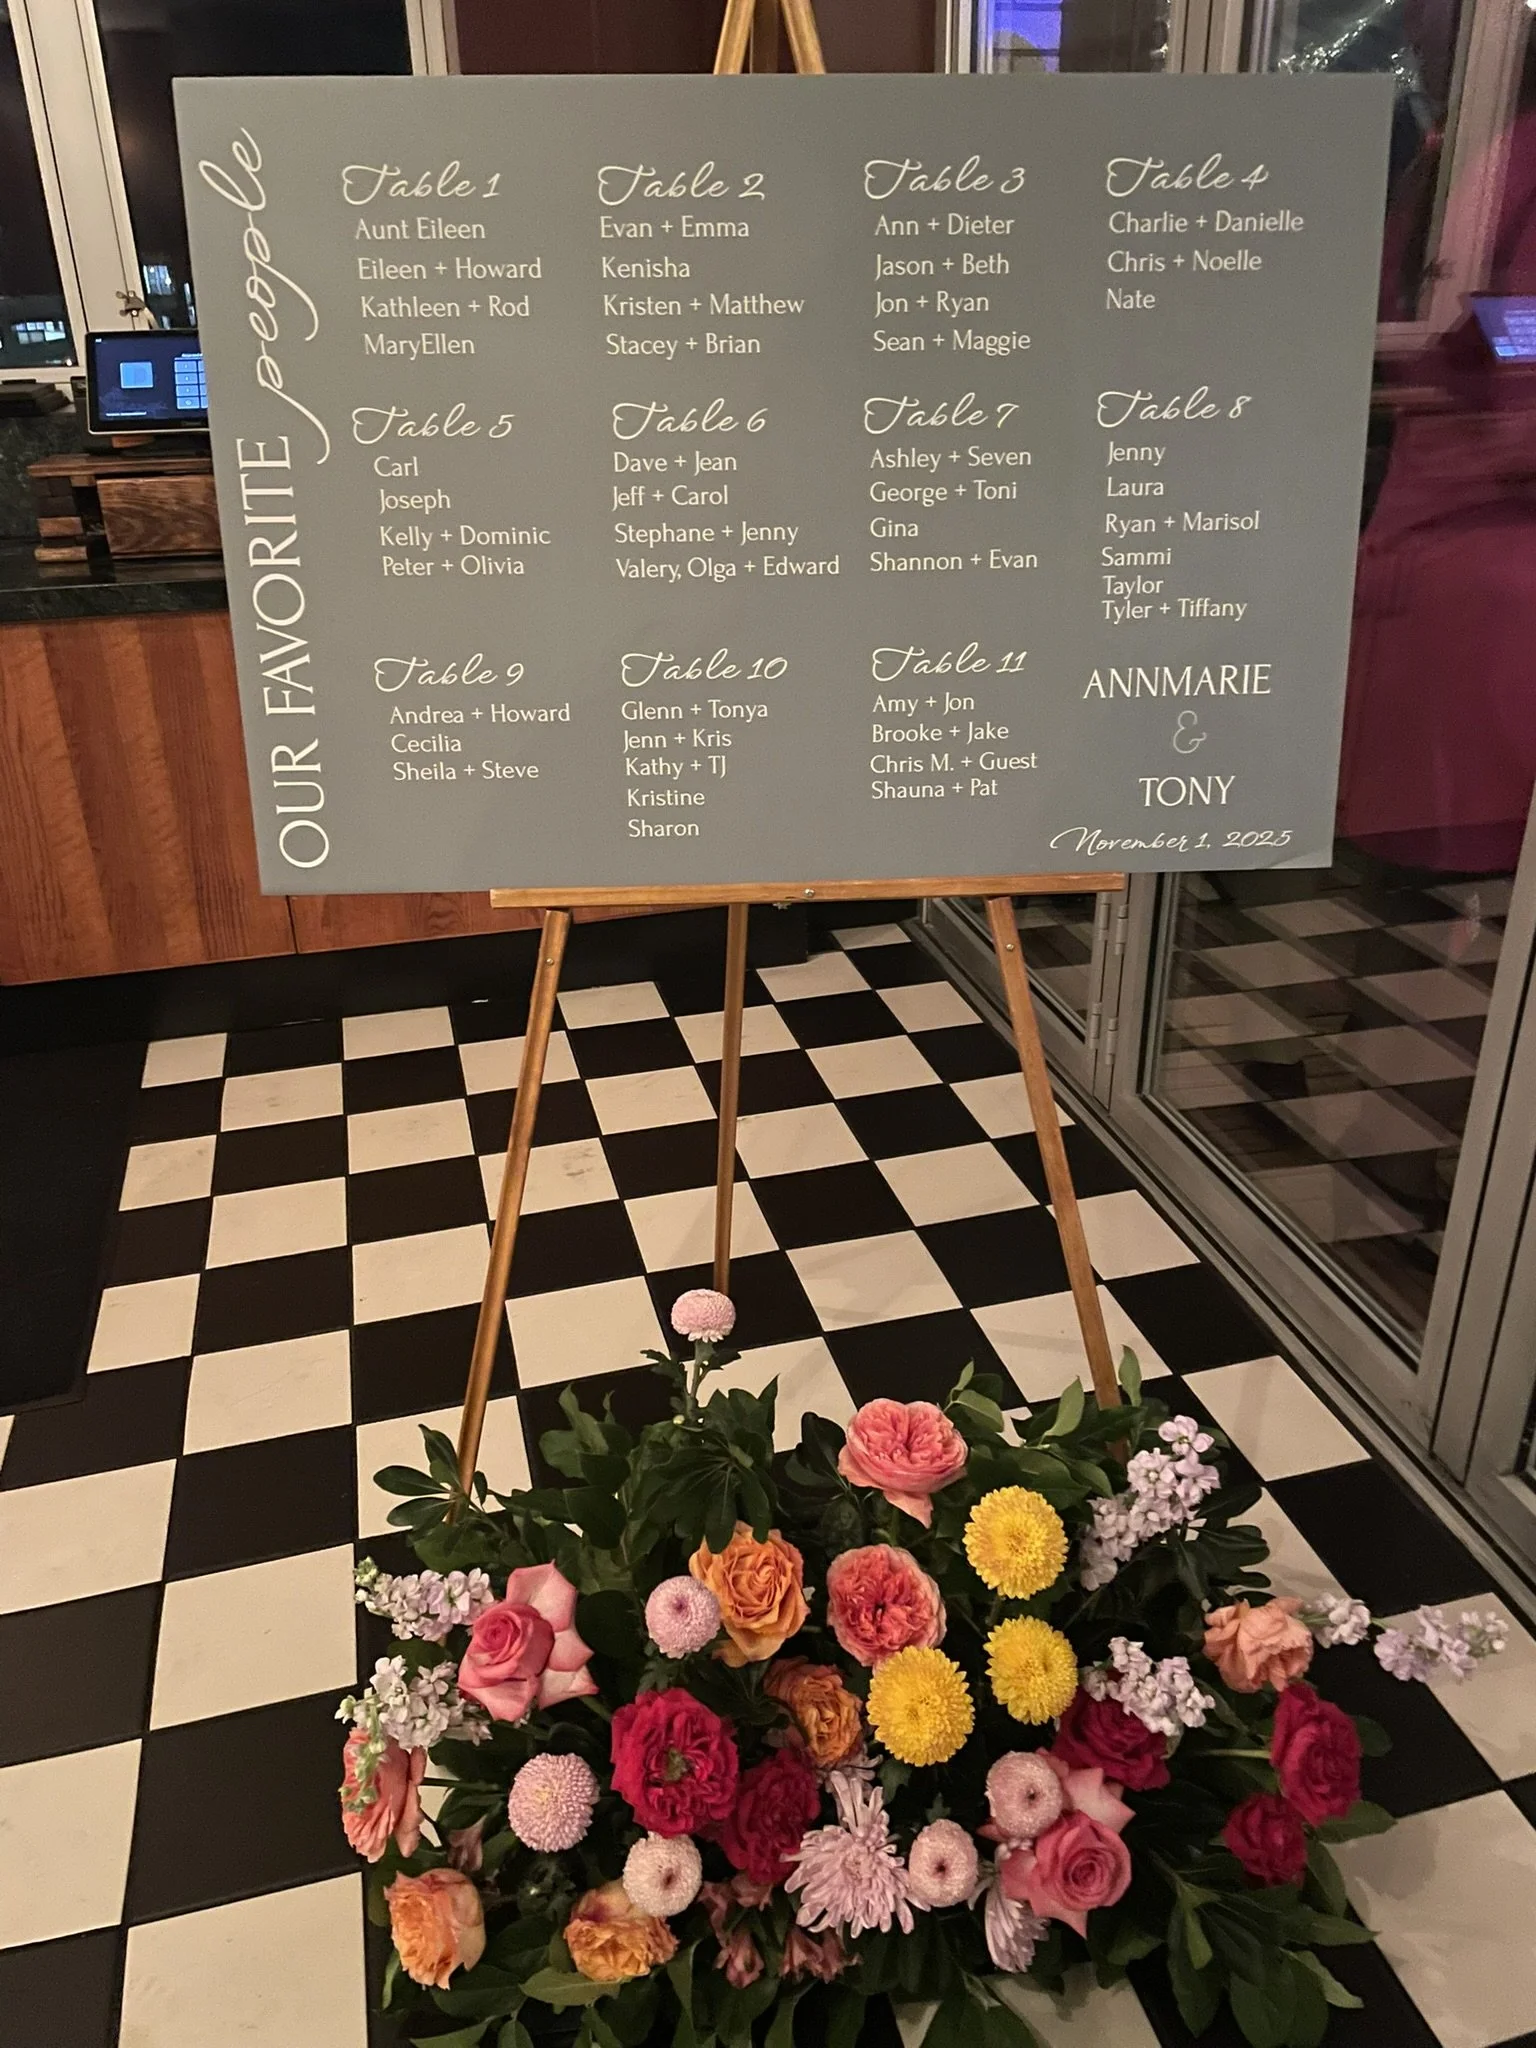 OUR FAVORITE people
Table 1
Aunt Eileen
Eileen + Howard
Kathleen + Rod
MaryEllen
Table 2
Evan + Emma
Kenisha
Kristen + Matthew
Stacey + Brian
Table 3
Ann + Dieter
Jason + Beth
Jon + Ryan
Sean + Maggie
Table 4
Charlie + Danielle
Chris + Noelle
Nate
Table 5
Carl
Joseph
Kelly + Dominic
Peter + Olivia
Table 6
Dave + Jean
Jeff + Carol
Stephane + Jenny
Valery, Olga + Edward
Table 7
Ashley + Seven
George + Toni
Gina
Shannon + Evan
Table 8
Jenny
Laura
Ryan + Marisol
Sammi
Taylor
Tyler + Tiffany
Table 9
Andrea + Howard
Cecilia
Sheila + Steve
Table 10
Glenn + Tonya
Jenn + Kris
Kathy + TJ
Kristine
Sharon
Table 11
Amy + Jon
Brooke + Jake
Chris M. + Guest
Shauna + Pat
ANNMARIE
&
TONY
November 1, 2025